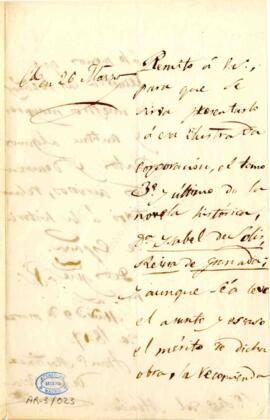 Remito á V.,
Cn. en 26 Marzo
para que se
sirva presentarlo
á esa ilustrada
corporacion, el tomo
3º y ultimo de la
novela histórica,
Dª Ysabel de Solís,
Reina de Granada;
y aunque sea leve
el asunto y escaso
el mérito de dicha
obra, la recomienda
AR-3/023